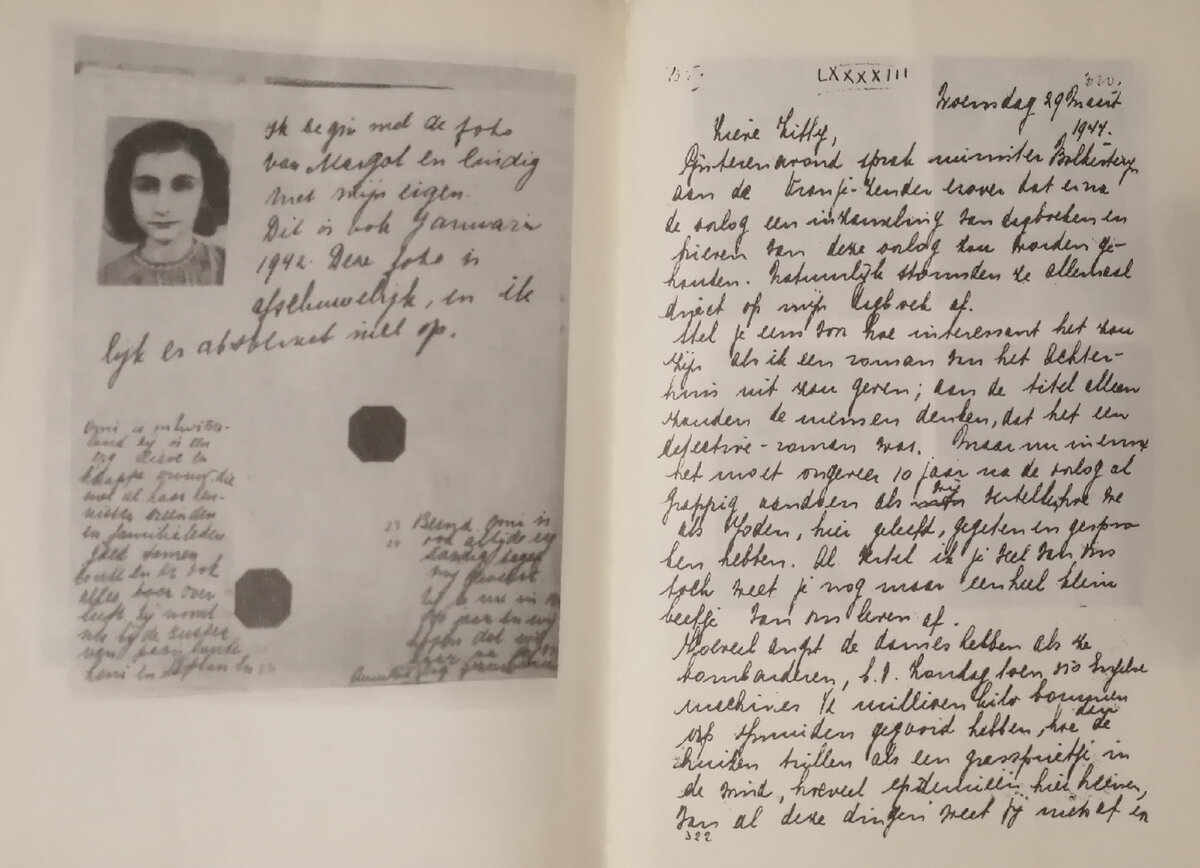 Ik begin met de foto
van Margot en eindig
met mijn eigen.
Dit is ook Januari
1942. Deze foto is
afschuwelijk, en ik
lijk er absoluut niet op.
Omi is in Zwitser-
land zij is een
erg lieve en
knappe vrouw, die
met al haar ken-
nissen vrienden
en familieleden
goed samen
en er ook
alles voor over
Bernd. Omi is
ook altijd erg
aardig tegen
mij geweest
LXXXXIII
330.
Woensdag 29 Maart
1944.
Lieve Kitty,
Gisterenavond sprak minister Bolkesteyn
aan de Oranje-zender erover dat er na
de oorlog een inzameling van dagboeken en
brieven van deze oorlog zou worden ge-
houden. Natuurlijk stormden ze allemaal
direct op mijn dagboek af.
Stel je eens voor hoe interessant het zou
zijn als ik een roman van het Achter-
huis uit zou geven; aan de titel alleen
zouden de mensen denken, dat het een
detective-roman was. Maar nu in ernst
het moet ongeveer 10 jaar na de oorlog al
grappig aandoen als wij vertellen hoe we
als Joden, hier geleefd, gegeten en gespro-
ken hebben. Al vertel ik je veel van ons
toch weet je nog maar een heel klein
beetje van ons leven af.
Hoeveel angst de dames hebben als ze
bombarderen, b.v. Zondag toen 350 Engelse
machines ½ millioen kilo bommen
op Ijmuiden gegooid hebben, hoe dan de
huizen trillen als een grassprietje in
de wind, hoeveel epidemieën hier heersen,
van al deze dingen weet jij niets af en
322